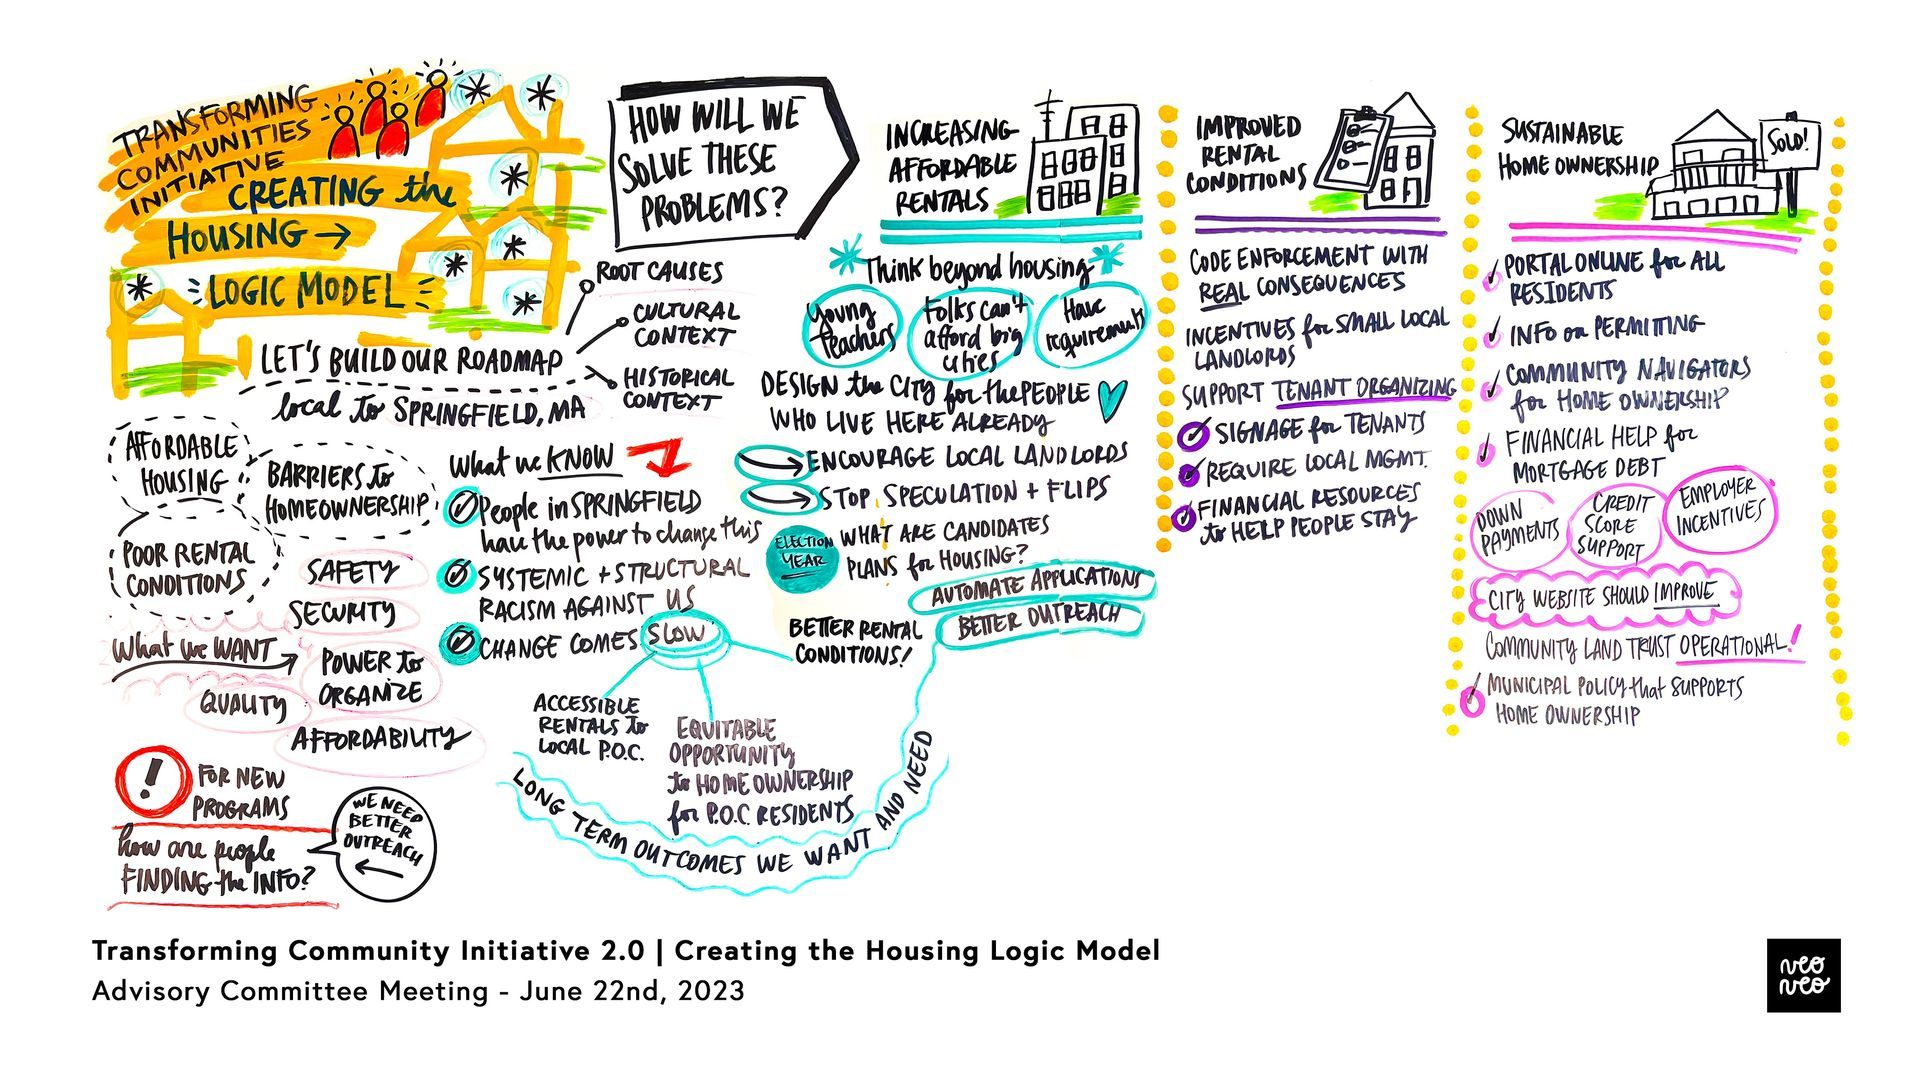 TRANSFORMING
COMMUNITIES
INITIATIVE
CREATING the
HOUSING →
LOGIC MODEL
LET'S BUILD OUR ROADMAP
local to SPRINGFIELD, MA
ROOT CAUSES
CULTURAL
CONTEXT
HISTORICAL
CONTEXT
AFFORDABLE
HOUSING
BARRIERS to
HOMEOWNERSHIP
POOR RENTAL
CONDITIONS
What we WANT
SAFETY
SECURITY
POWER to
ORGANIZE
QUALITY
AFFORDABILITY
!
FOR NEW
PROGRAMS
how are people
FINDING the INFO?
WE NEED
BETTER
OUTREACH
What we KNOW
People in SPRINGFIELD
have the power to change this
SYSTEMIC + STRUCTURAL
RACISM AGAINST US
CHANGE COMES SLOW
ACCESSIBLE
RENTALS to
LOCAL P.O.C.
EQUITABLE
OPPORTUNITY
to HOME OWNERSHIP
for P.O.C. RESIDENTS
BETTER RENTAL
CONDITIONS!
LONG TERM OUTCOMES WE WANT AND NEED
HOW WILL WE
SOLVE THESE
PROBLEMS?
INCREASING
AFFORDABLE
RENTALS
Think beyond housing
Young
teachers
Folks can't
afford big
cities
Have
requirements
DESIGN the CITY for the PEOPLE
WHO LIVE HERE ALREADY
ENCOURAGE LOCAL LANDLORDS
STOP SPECULATION + FLIPS
ELECTION
YEAR
WHAT ARE CANDIDATES
PLANS for HOUSING?
AUTOMATE APPLICATIONS
BETTER OUTREACH
IMPROVED
RENTAL
CONDITIONS
CODE ENFORCEMENT WITH
REAL CONSEQUENCES
INCENTIVES for SMALL LOCAL
LANDLORDS
SUPPORT TENANT ORGANIZING
SIGNAGE for TENANTS
REQUIRE LOCAL MGMT.
FINANCIAL RESOURCES
to HELP PEOPLE STAY
SUSTAINABLE
HOME OWNERSHIP
SOLD!
PORTAL ONLINE for ALL
RESIDENTS
INFO on PERMITTING
COMMUNITY NAVIGATORS
for HOME OWNERSHIP
FINANCIAL HELP for
MORTGAGE DEBT
DOWN
PAYMENTS
CREDIT
SCORE
SUPPORT
EMPLOYER
INCENTIVES
CITY WEBSITE SHOULD IMPROVE
COMMUNITY LAND TRUST OPERATIONAL!
MUNICIPAL POLICY that SUPPORTS
HOME OWNERSHIP
Transforming Community Initiative 2.0 | Creating the Housing Logic Model
Advisory Committee Meeting - June 22nd, 2023
veo
veo